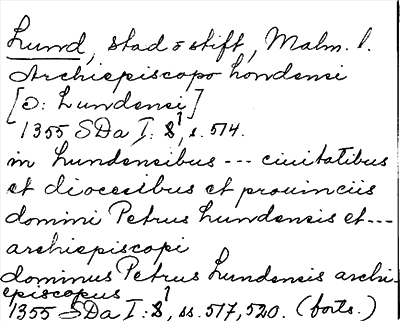 Lund, stad o stift, Malm. l.
Archiepiscopo Londensi
[ɔ: Lundensi]
1355 SDa I: 8¹, s. 514.
in Lundensibus --- ciuitatibus
et diocesibus et prouinciis
domini Petrus Lundensis et ---
archiepiscopi
dominus Petrus Lundensis archi-
episcopus
1355 SDa I: 8¹, ss. 517, 520. (forts.)